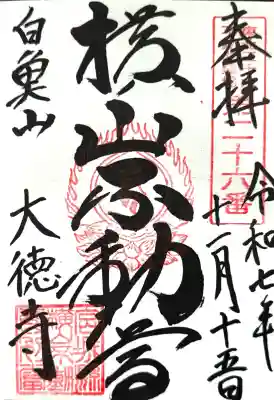 奉拝
二十六番
令和七年
十一月十五日
横山不動尊
白魚山
大徳寺